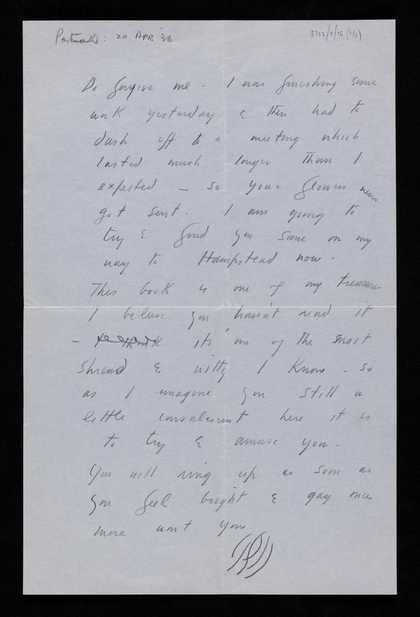 Postmark: 20 APR '38
Do forgive me. I was finishing some
work yesterday & then had to
dash off to a meeting which
lasted much longer than I
expected – so your flowers never
got sent. I am going to
try & find you some on my
way to Hampstead now.
This book is one of my treasures
I believe you haven't read it
– its one of the most
shrewd & witty I know – so
as I imagine you still a
little convalescent here it is
to try & amuse you.
You will ring up as soon as
you feel bright & gay once
more won't you